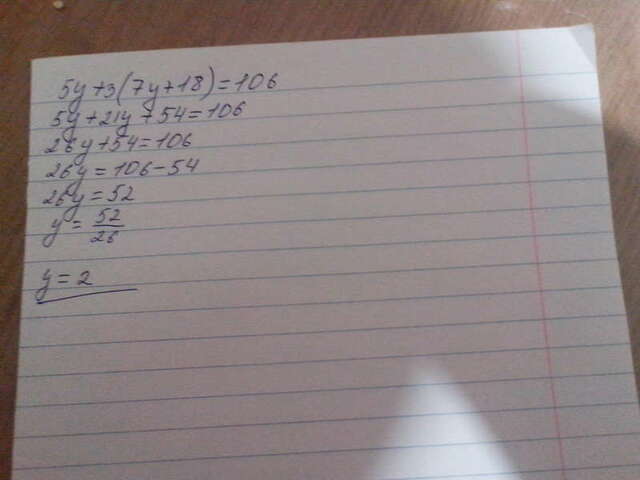 5y+3(7y+18)=106
5y+21y+54=106
26y+54=106
26y=106-54
26y=52
y=52/26
y=2